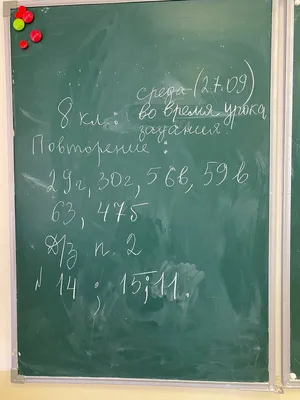 среда (27.09)
8 кл.: во время урока
задания
Повторение:
29г, 30г, 56в, 59в
63, 47б
Д/З п. 2
№ 14; 15; 11.